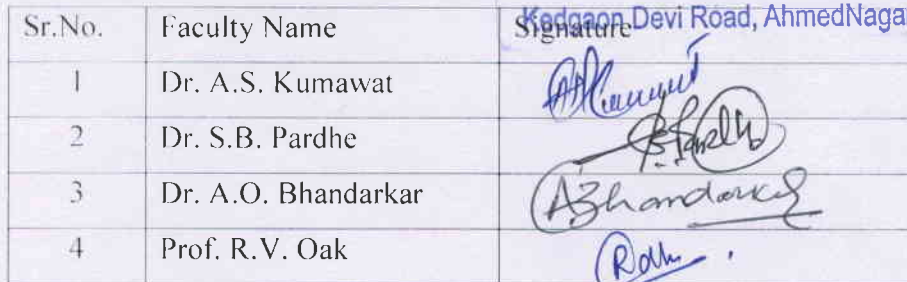 Kedgaon Devi Road, AhmedNagar
Sr.No. Faculty Name Signature
1 Dr. A.S. Kumawat
2 Dr. S.B. Pardhe
3 Dr. A.O. Bhandarkar ABhandarkar
4 Prof. R.V. Oak